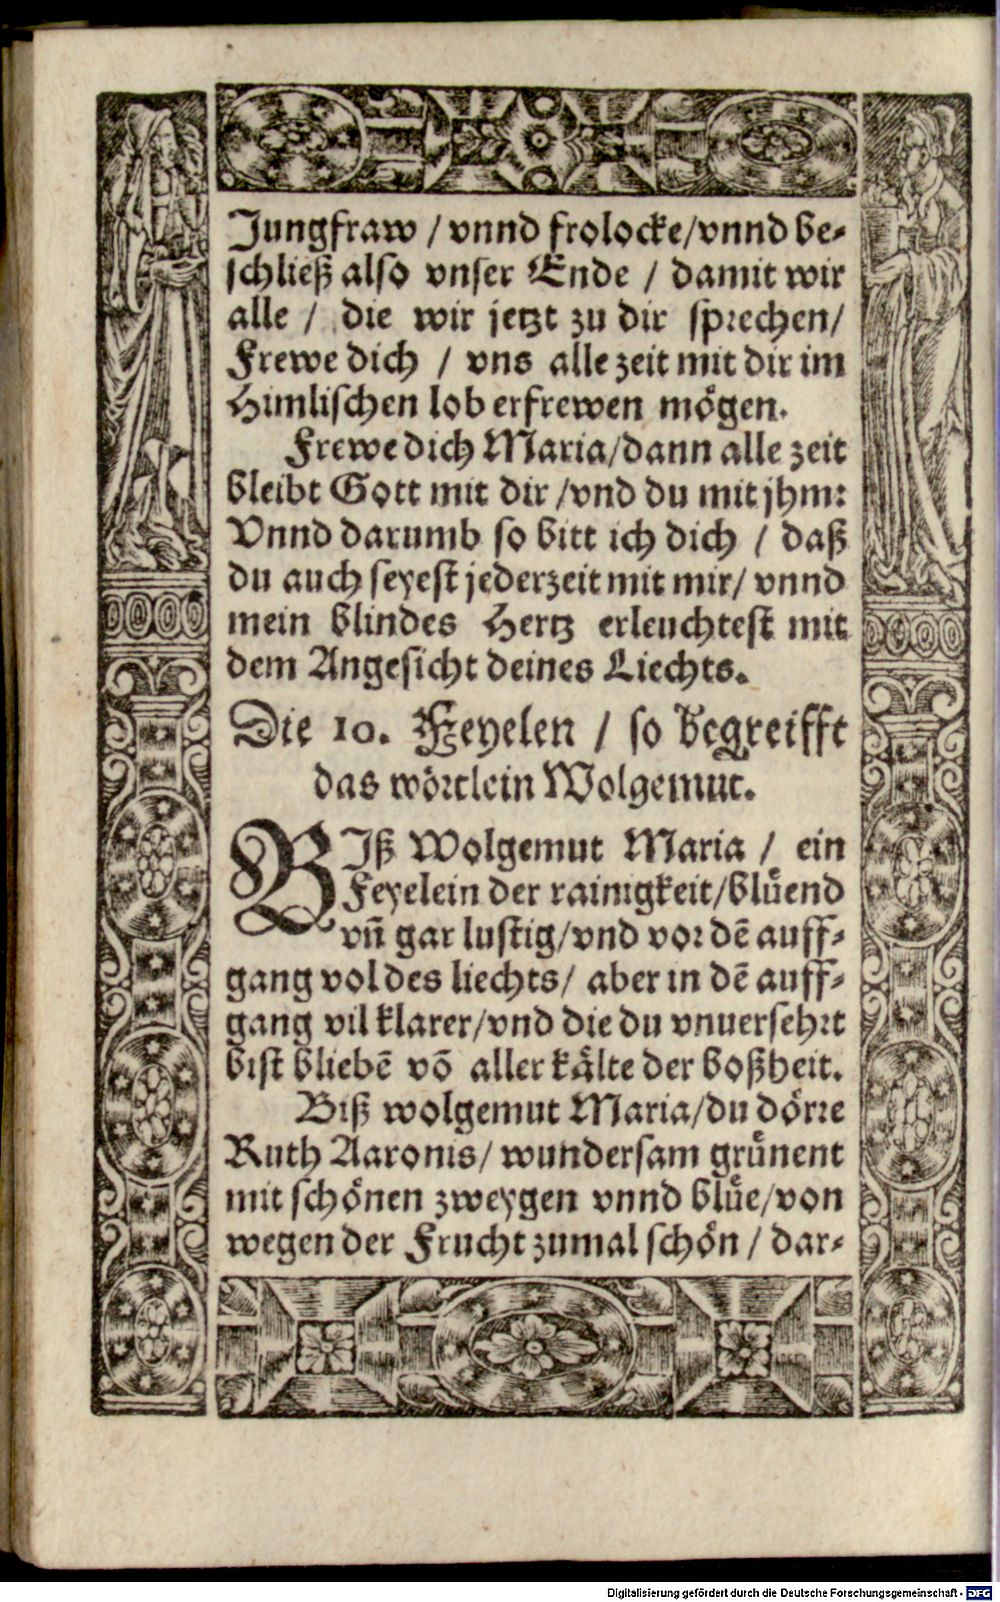 Jungfraw / vnnd frolocke/vnnd be-
schließ also vnser Ende / damit wir
alle / die wir jetzt zu dir sprechen/
Frewe dich / vns alle zeit mit dir im
Himlischen lob erfrewen mögen.
Frewe dich Maria/dann alle zeit
bleibt Gott mit dir /vnd du mit jhm:
Vnnd darumb so bitt ich dich / daß
du auch seyest jederzeit mit mir/ vnnd
mein blindes Hertz erleuchtest mit
dem Angesicht deines Liechts.
Die 10. Feyelen / so begreifft
das wörtlein Wolgemut.
BIß Wolgemut Maria / ein
Feyelein der rainigkeit/blüend
vñ gar lustig/vnd vor dẽ auff-
gang vol des liechts/ aber in dẽ auff-
gang vil klarer/vnd die du vnuersehrt
bist bliebẽ võ aller kälte der boßheit.
Biß wolgemut Maria/du dörre
Ruth Aaronis/ wundersam grünent
mit schönen zweygen vnnd blüe/von
wegen der Frucht zumal schön / dar-
Digitalisierung gefördert durch die Deutsche Forschungsgemeinschaft - DFG